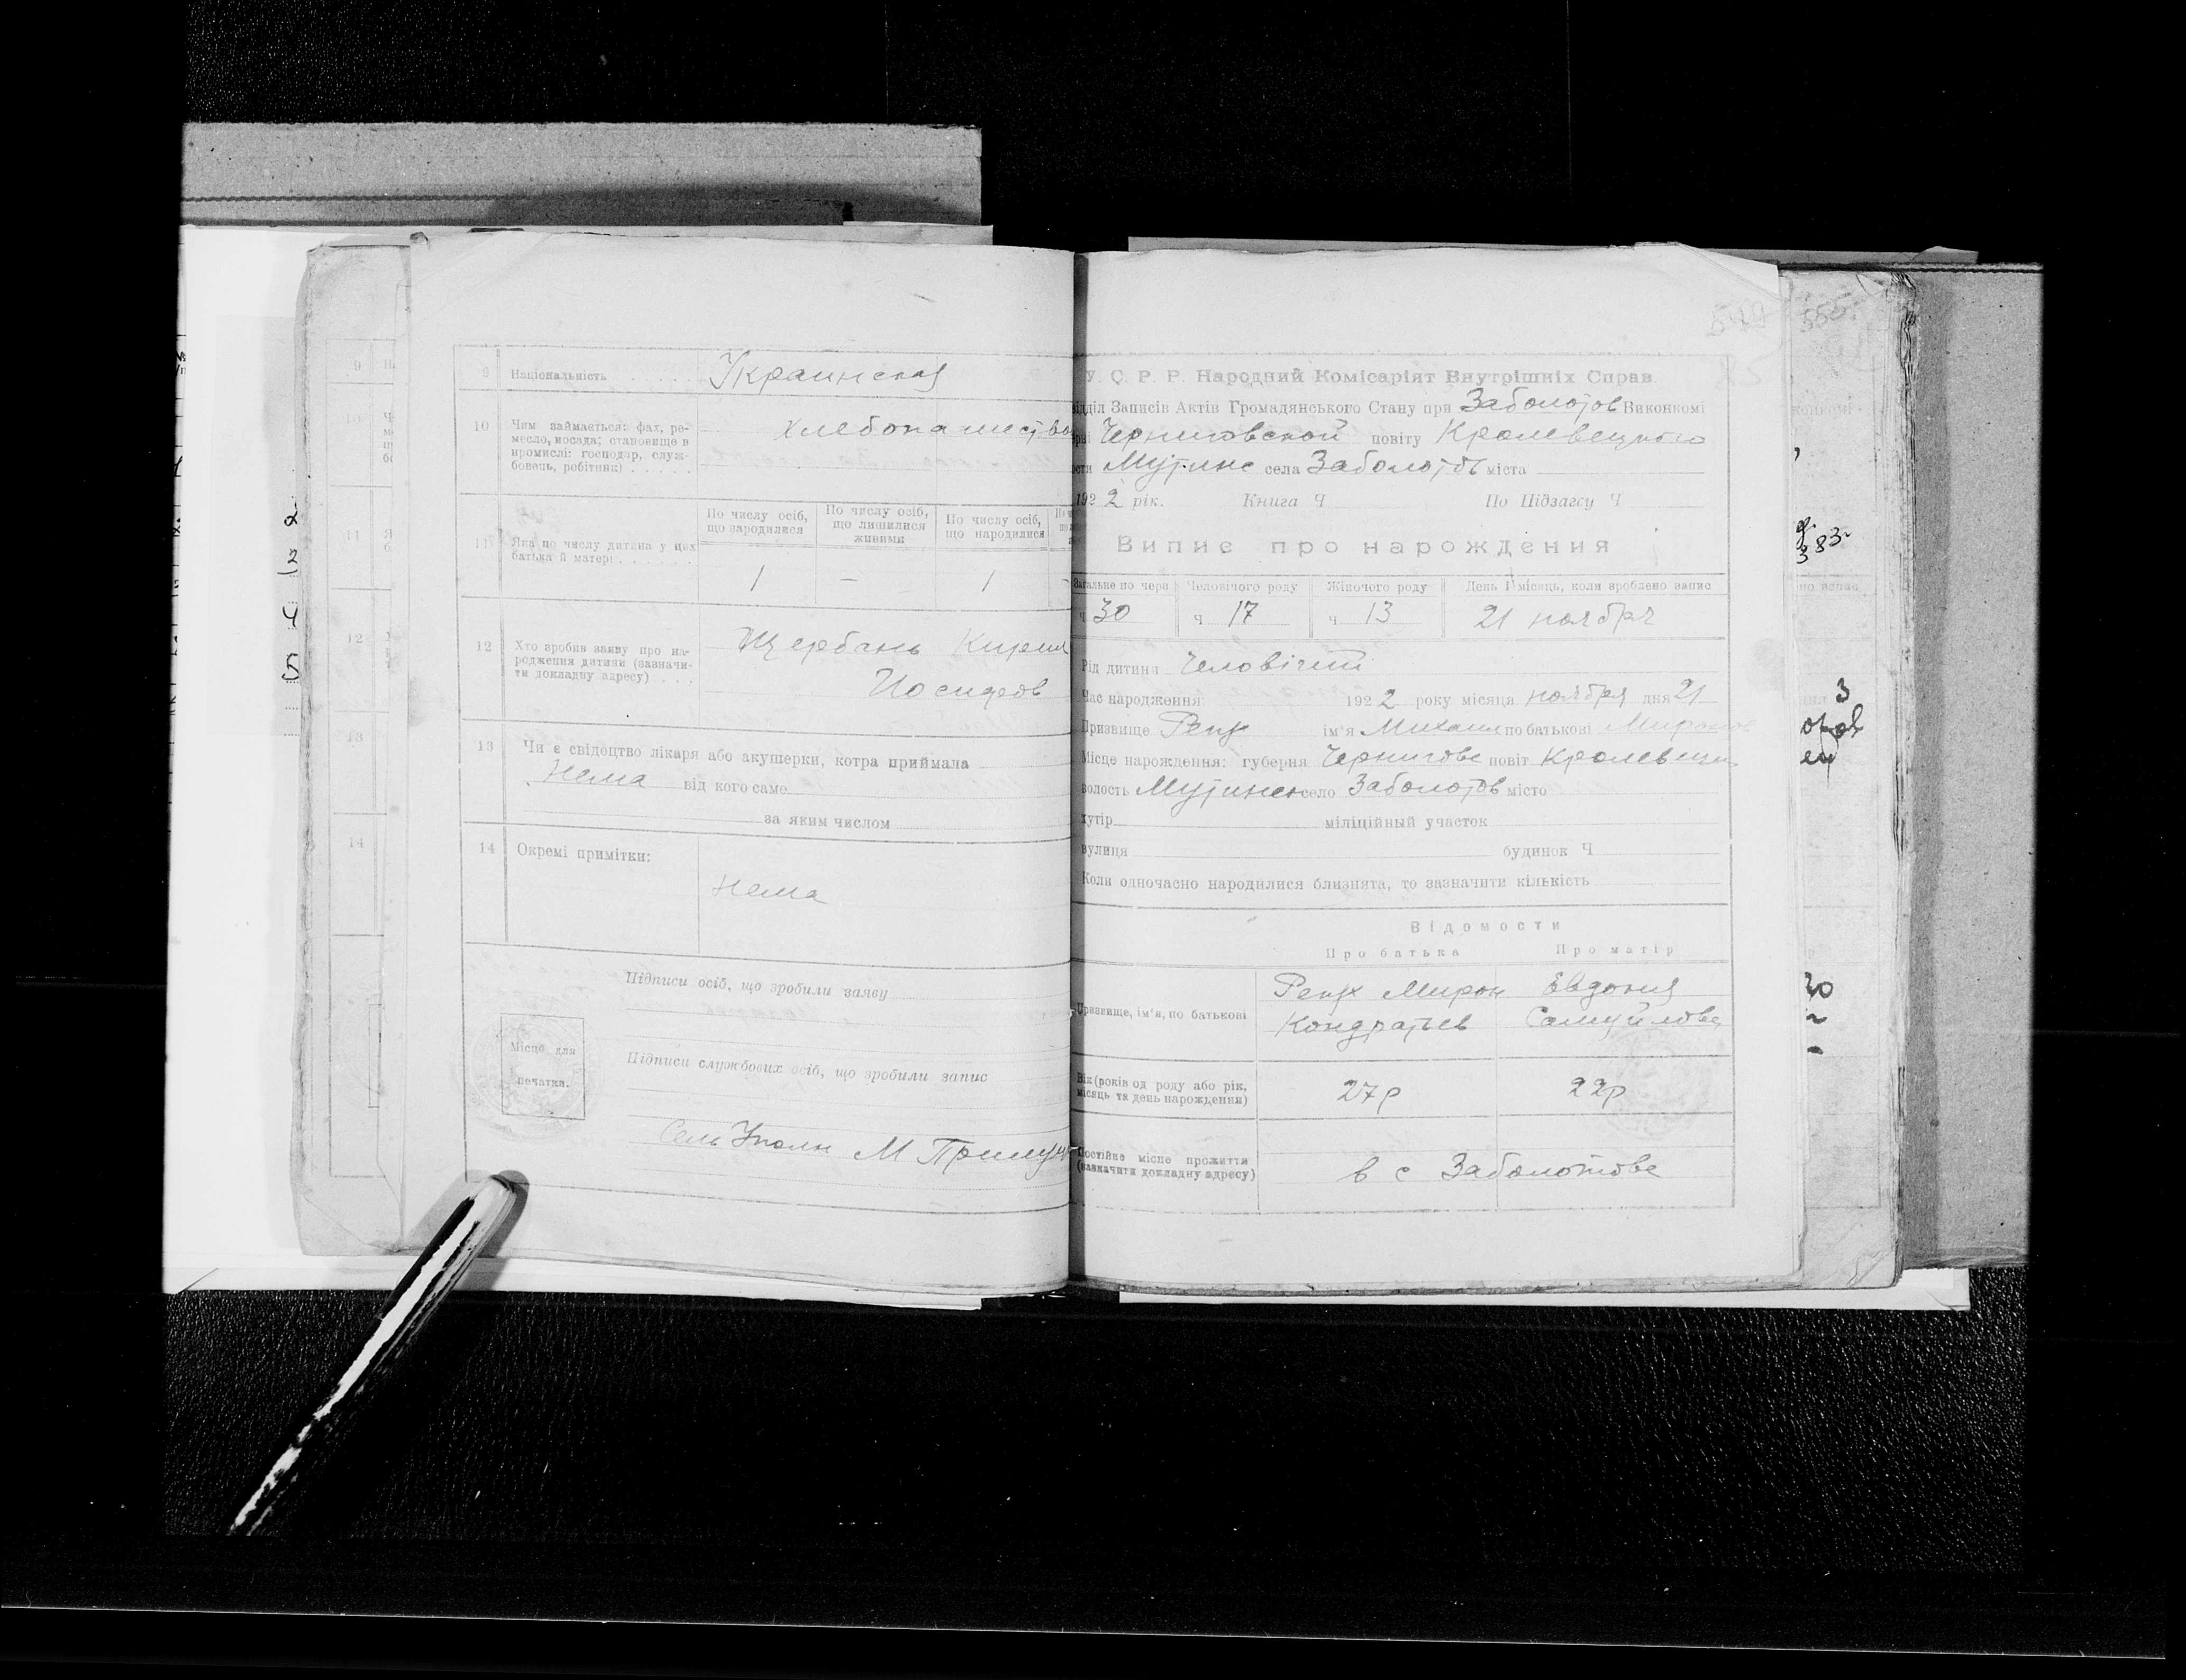 9 Національність Украинская
10 Чим займається: фах, ре-
месло, посада; становище в
промислі: господар, служ-
бовець, робітник)
Хлебопашество
По числу осіб, що народилися
По числу осіб, що лишилися живими
По числу осіб, що народилися
11 Яка по числу дитина у цих
батька й матері
1 — 1
12 Хто зробив заяву про на-
родження дитини (зазначи-
ти докладну адресу)
Щербань Кирил
Иосифов
13 Чи є свідоцтво лікаря або акушерки, котра приймала
Нема від кого саме
за яким числом
14 Окремі примітки:
Нема
Підписи осіб, що зробили заяву
Місце для
печатки.
Підписи службових осіб, що зробили запис
Сель Уполн М
У. С. Р. Р. Народний Комісаріят Внутрішніх Справ.
відділ Записів Актів Громадянського Стану при Заболотов Виконкомі
Черниговской повіту Кролевецкого
Мутинс села Заболотов міста
1922 рік. Книга Ч По Підзагсу Ч
Випис про нарождения
Загальне по черв
Человічого роду
Жіночого роду
День і місяць, коли зроблено запис
ч 30 ч 17 ч 13 21 ноября
Рід дитини Человічий
Час народження 1922 року місяця ноября дня 21
Призвище Репх ім'я Михаил по батькові Миронов
Місце нарождення: губерня Чернигове повіт Кролевецк
волость Мутинск село Заболотов місто
хутір міліційный участок
вулиця будинок Ч
Коли одночасно народилися близнята, то зазначити кількість
Відомости
Про батька Про матір
Призвище, ім'я, по батькові
Репх Мирон Евдокия
Кондратьев Самуйлове
Вік (років од роду або рік,
місяць та день нарождення)
27р 22р
Постійне місце прожиття
(зазначити докладну адресу)
в с Заболотове